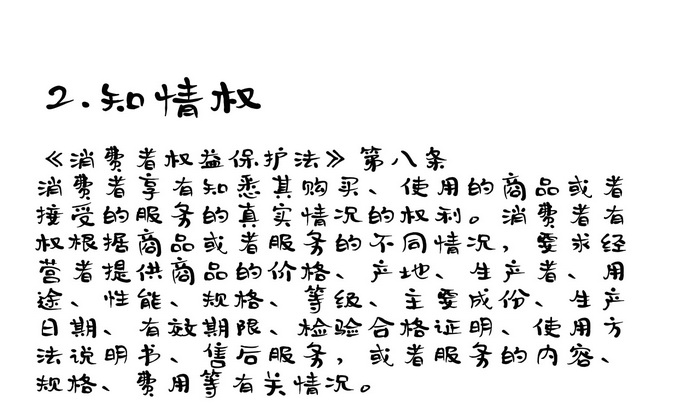 2.知情权
《消费者权益保护法》第八条
消费者享有知悉其购买、使用的商品或者
接受的服务的真实情况的权利。消费者有
权根据商品或者服务的不同情况，要求经
营者提供商品的价格、产地、生产者、用
途、性能、规格、等级、主要成份、生产
日期、有效期限、检验合格证明、使用方
法说明书、售后服务，或者服务的内容、
规格、费用等有关情况。